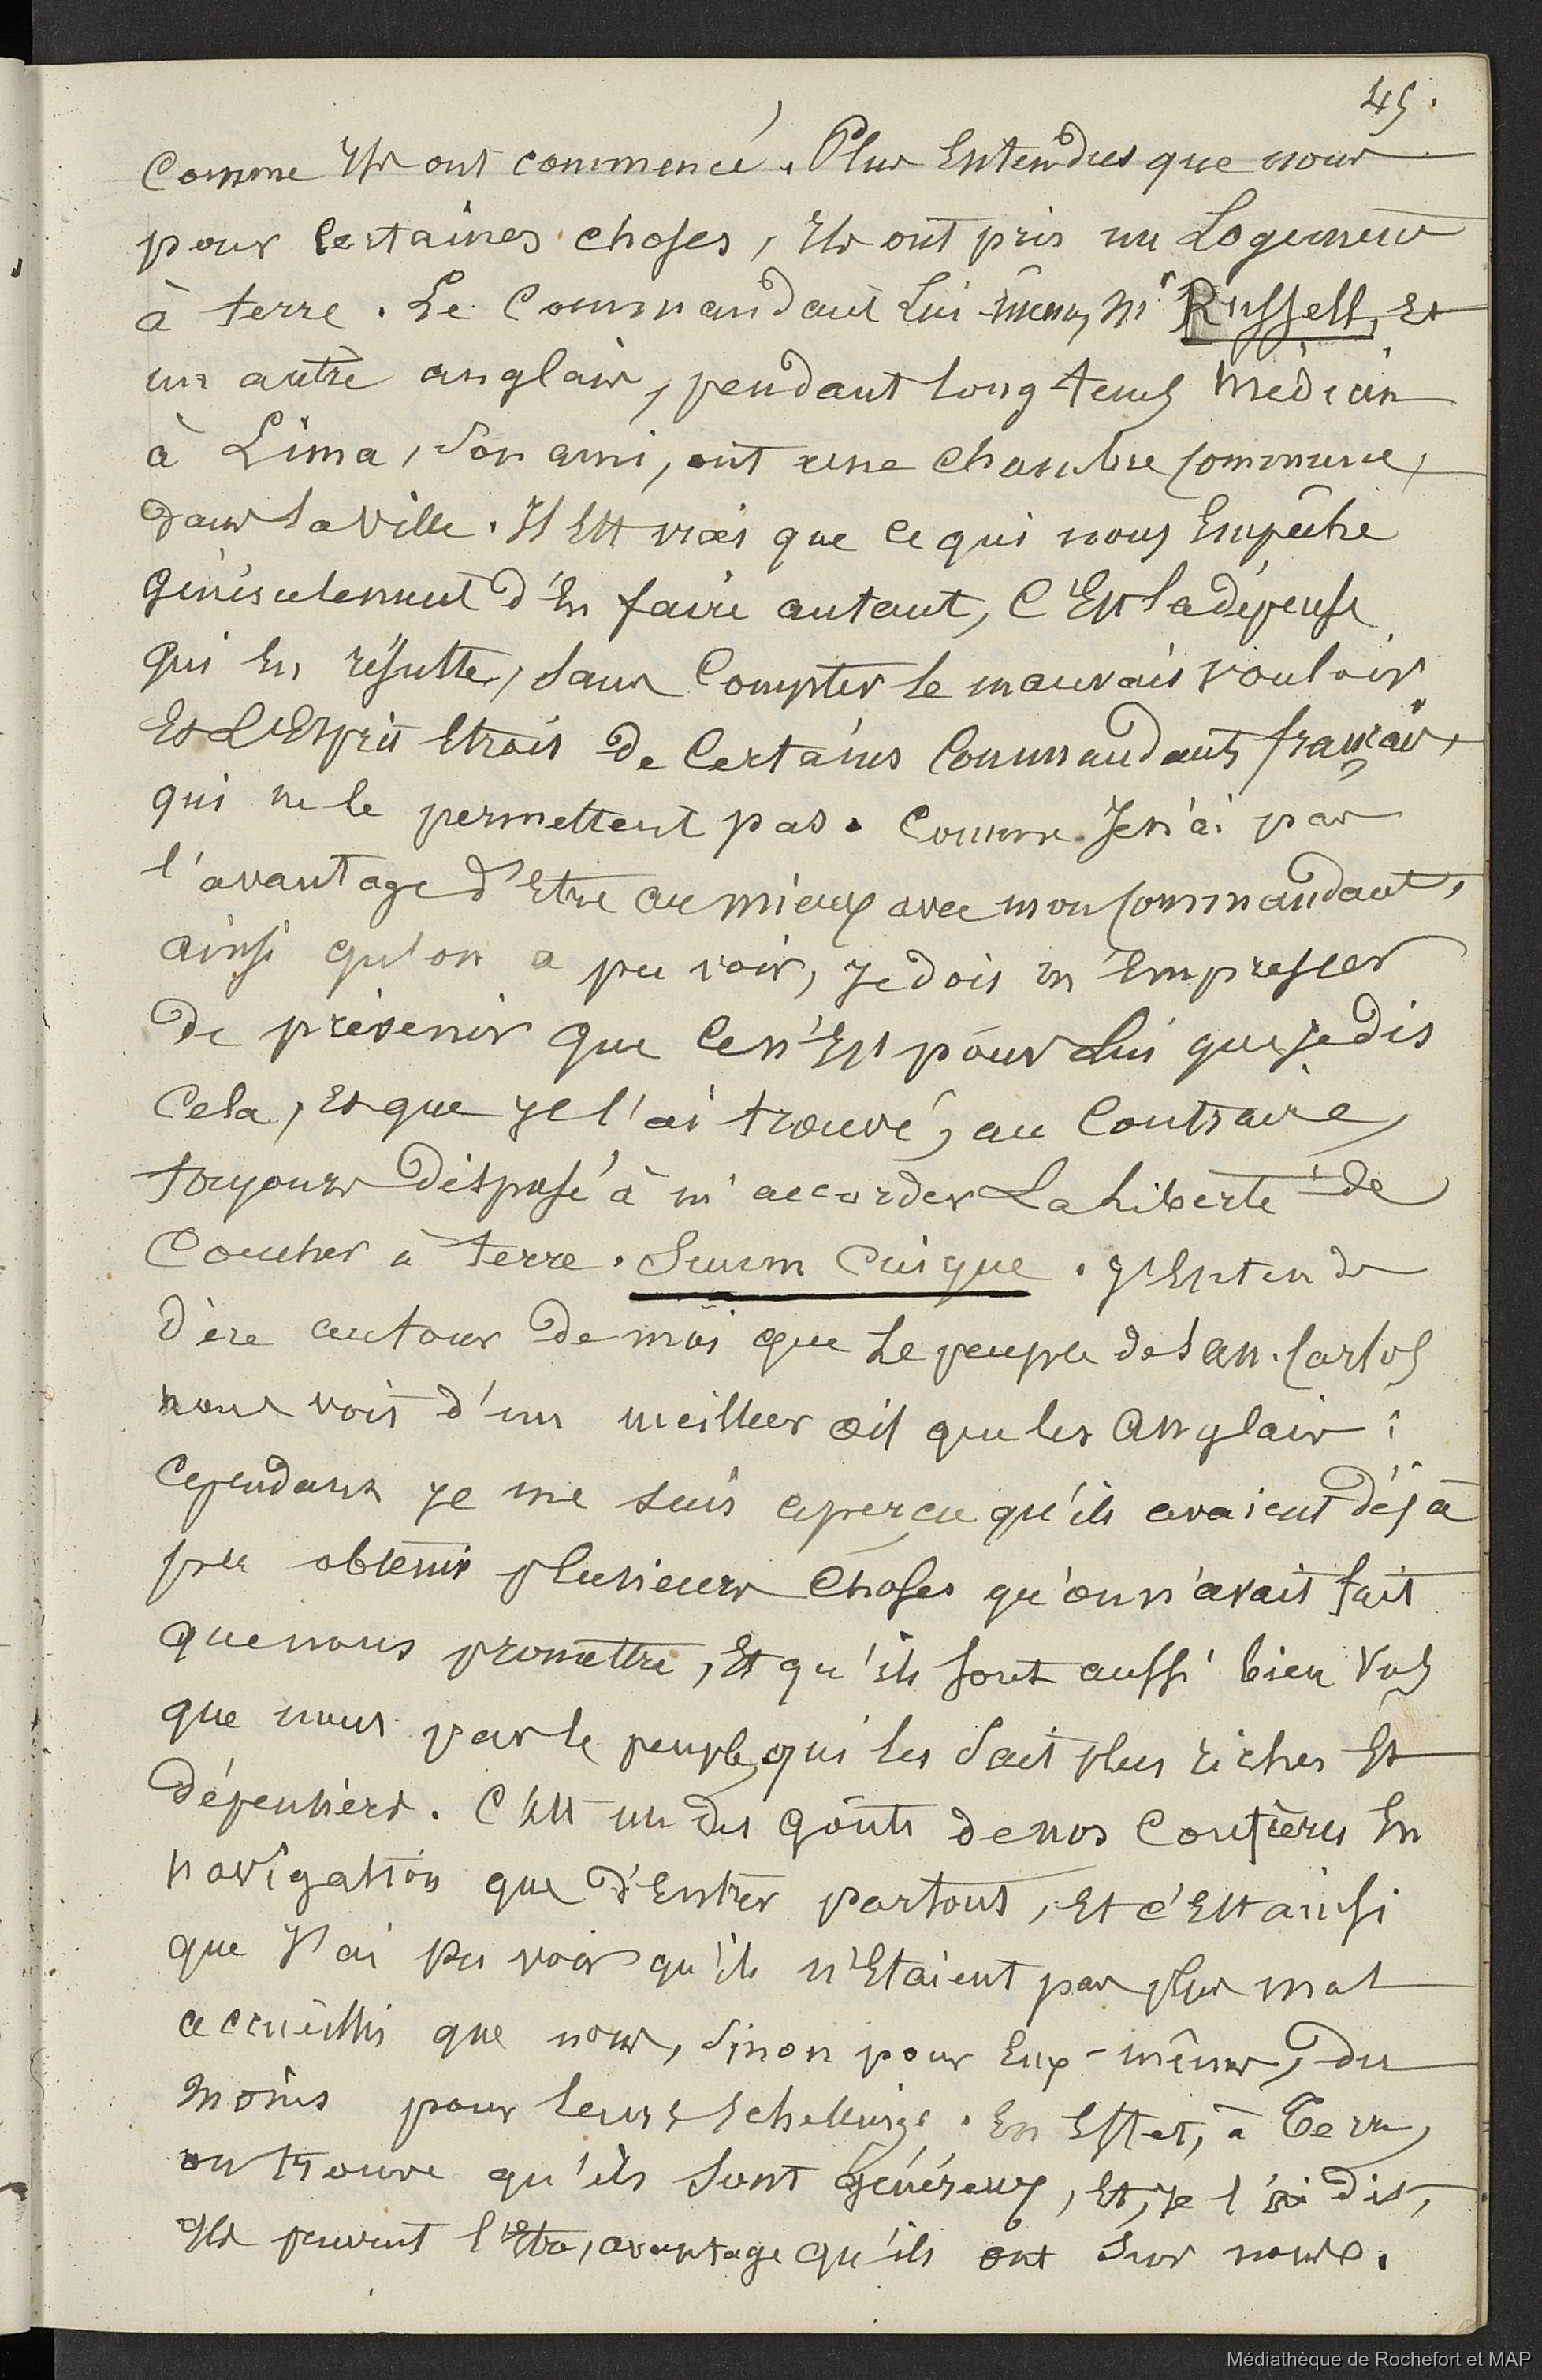 45.
Comme Ils ont commencé. Plus Entendus que nous
pour Certaines choses, Ils ont pris un Logement
à terre. Le Commandant Lui-même, Mr Russell, Et
un autre anglais, pendant longtems Médecin
à Lima, Son ami, ont une Chambre Commune,
dans la Ville. Il Est vrai que Ce qui nous Empêche
généralement d'En faire autant, C'Est la dépense
qui En résulte, Sans Compter le mauvais vouloir
Et L'Esprit Etroit de Certains Commandants français,
qui ne le permettent pas. Comme Je n'ai pas
l'avantage d'Etre au mieux avec mon Commandant,
ainsi qu'on a pu voir, Je dois m'Empresser
De prévenir que Ce n'Est pour Lui que Je dis
Cela, Et que Je l'ai trouvé, au Contraire,
toujours disposé à m'accorder La Liberté de
Coucher à terre. Suum Cuique. J'Entends
dire autour de moi que Le peuple de San. Carlos
nous voit d'un meilleur œil que les Anglais :
Cependant Je me suis aperçu qu'ils avaient déjà
pu obtenir plusieurs Choses qu'on n'avait fait
que nous promettre, Et qu'ils sont aussi bien vus
que nous par le peuple, qui les Sait plus riches Et
dépensiers. C'Est un des goûts de nos Confrères En
navigation que d'Entrer partout, Et c'Est ainsi
que J'ai pu voir qu'ils n'Etaient pas plus mal
accueillis que nous, Sinon pour Eux-mêmes, du
Moins pour leurs Schellings. En Effet, à Terre,
on trouve qu'ils Sont généreux, Et, Je l'ai dit,
Ils peuvent l'Etre, avantage qu'ils ont Sur nous.
Médiathèque de Rochefort et MAP